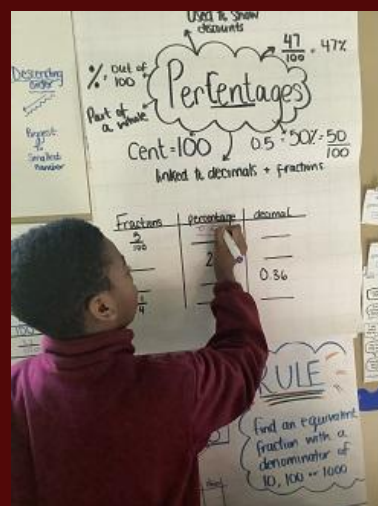 Used to show
discounts
47
100
= 47%
% out of
100
Percentages
Part of
a whole
Cent=100
0.5 = 50% = 50
100
linked to decimals + fractions
Descending
order
Biggest
to
Smallest
number
Fractions percentage decimal
5
100
2
0.36
4
RULE
find an equivalent
fraction with a
denominator of
10, 100 or 1000